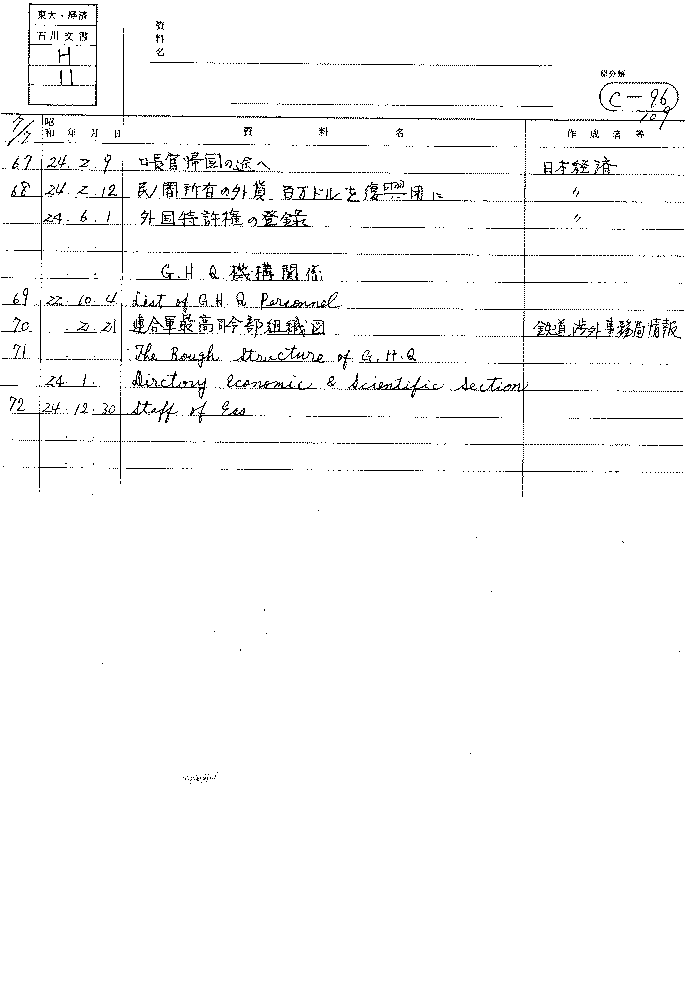 東大・経済
石川文書
H
11
資料名
原分類
C-96
109
7/7 昭和 年 月 日 資料名 作成者等
67 24.2.9 ロ長官帰国の途へ 日本経済
68 24.2.12 民間所有の外貨 百万ドルを復興用に 〃
24.6.1 外国特許権の登録 〃
G.H.Q 機構関係
69 22.10.4 List of G.H.Q Personnel
70 2.21 連合軍最高司令部組織図 鉄道渉外事務局情報
71 The Rough Structure of G.H.Q
24.1. Dirctory Economic & Scientific Section
72 24.12.30 Staff of Ess